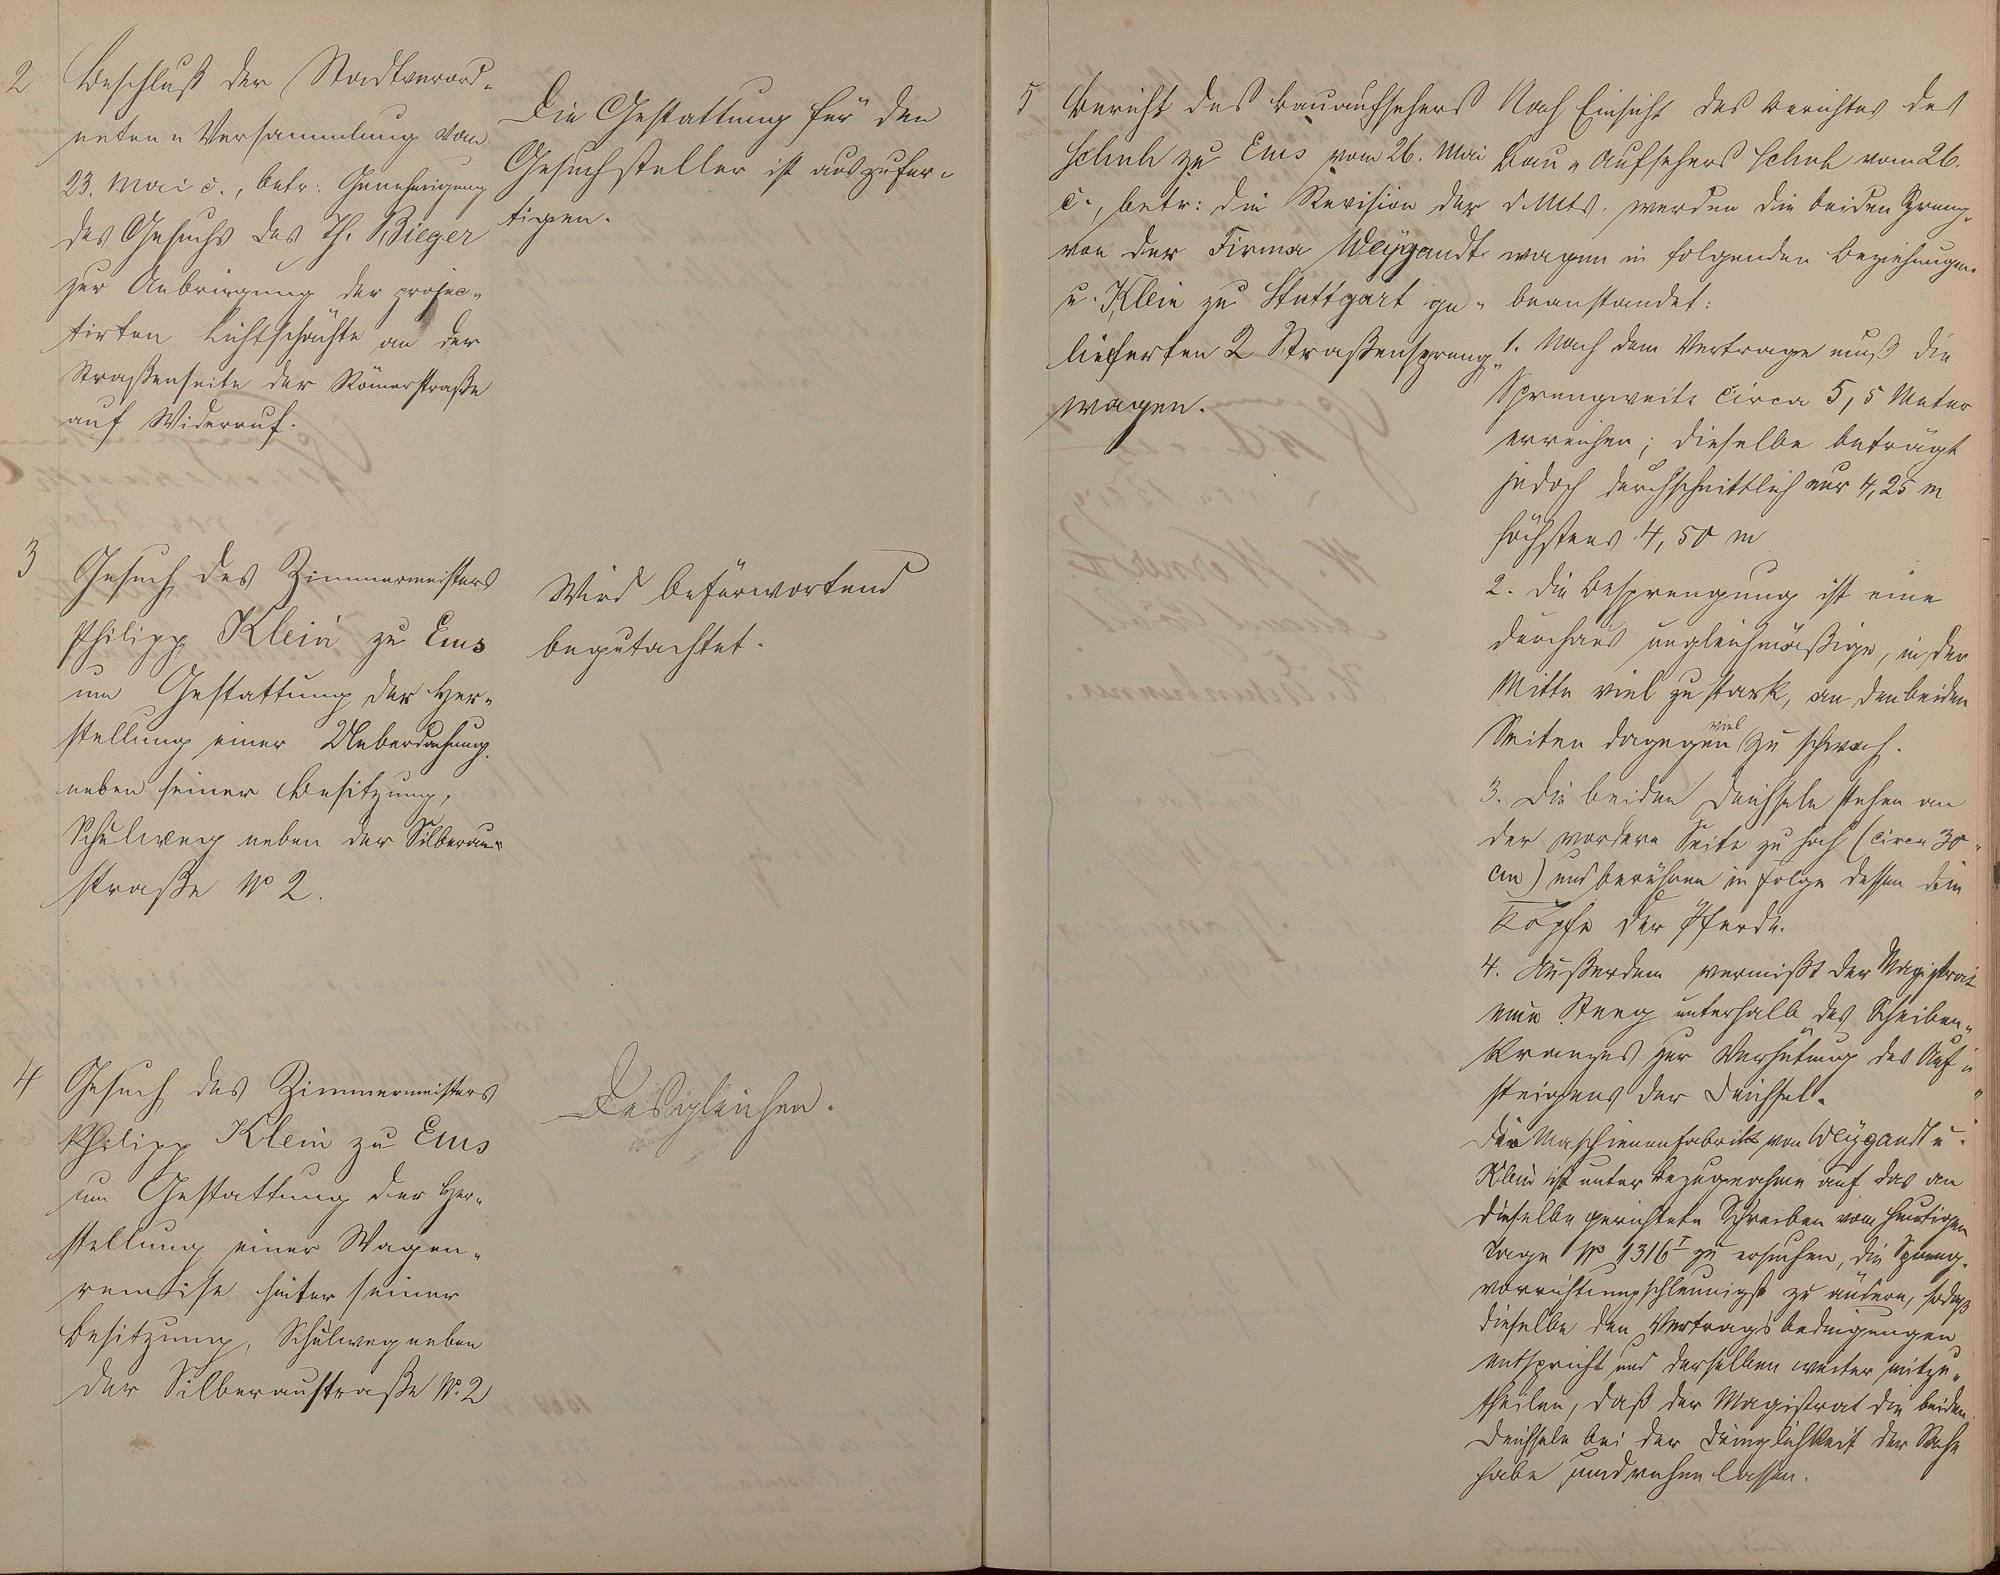 2
Beschluß der Stadtverord-
neten-Versammlung vom
23. Mai c., betr: Genehmigung
des Gesuchs des Th. Bieger
zur Anbringung der projec-
tirten Lichtschächte an der
Straßenseite der Römerstraße
auf Widerruf.
Die Gestattung für den
Gesuchsteller ist auszufer-
tigen.
3
Gesuch des Zimmermeisters
Philipp Klein zu Ems
um Gestattung der Her-
stellung einer Ueberdachung
neben seiner Besitzung,
Schulweg neben der Silberau-
straße No 2.
Wird befürwortend
begutachtet.
4
Gesuch des Zimmermeisters
Philipp Klein zu Ems
um Gestattung der Her-
stellung einer Wagen-
remise hinter seiner
Besitzung, Schulweg neben
der Silberaustraße No. 2
Desgleichen.
5
Bericht des Bauaufsehers
Schuh zu Ems vom 26. Mai
c., betr: die Revision der
von der Firma Weygandt
u. Klein zu Stuttgart ge-
lieferten 2 Straßenspreng-
wagen.
Nach Einsicht des Berichtes des
Bau-Aufsehers Schuh vom 26.
d. Mts. werden die beiden Spreng-
wagen in folgenden Beziehungen
beanstandet:
1. Nach dem Vertrage muß die
Sprengweite circa 5,5 Meter
erreichen; dieselbe beträgt
jedoch durchschnittlich nur 4,25 m
höchstens 4,50 m
2. Die Besprengung ist eine
durchaus ungleichmäßige, in der
Mitte viel zu stark, an den beiden
Seiten dagegen viel zu schwach.
3. Die beiden Deichseln stehen an
der vordere Seite zu hoch (circa 30
cm) und berühren in Folge dessen die
Köpfe der Pferde.
4. Außerdem vermißt der Magistrat
einen Steeg unterhalb des Scheiben-
kranzes zur Verhütung des Auf-
steigens der Deichsel.
Die Maschienenfabrik von Weygandt u.
Klein ist unter Bezugnahme auf das an
dieselbe gerichtete Schreiben vom heutigen
Tage No 1316 I zu ersuchen, die Spreng-
vorrichtung schleunigst zu ändern, sodaß
dieselbe den Vertragsbedingungen
entspricht und derselben weiter mitzu-
theilen, daß der Magistrat die beiden
Deichseln bei der Dringlichkeit der Sache
habe lassen.